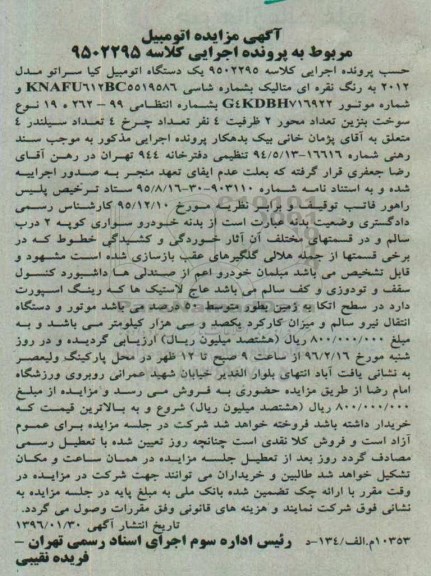 آگهی مزایده اتومبیل
مربوط به پرونده اجرایی کلاسه ۹۵۰۲۲۹۵
حسب پرونده اجرایی کلاسه ۹۵۰۲۲۹۵ یک دستگاه اتومبیل کیا سراتو مدل
۲۰۱۲ به رنگ نقره ای متالیک بشماره شاسی KNAFU۶۱۲BC۵۵۱۹۵۸۶ و
شماره موتور G۴KDBH۷۱۶۹۲۲ بشماره انتظامی ۹۹ – ۲۶۲ ه ۱۹ نوع
سوخت بنزین تعداد محور ۲ ظرفیت ۴ نفر تعداد چرخ ۴ تعداد سیلندر ۴
متعلق به آقای پژمان خانی بیک بدهکار پرونده اجرایی مذکور به موجب سند
رهنی شماره ۱۶۶۱۶-۹۴/۵/۱۳ تنظیمی دفترخانه ۹۴۴ تهران در رهن آقای
رضا جعفری قرار گرفته که بعلت عدم ایفای تعهد منجر به صدور اجراییه
شده و به استناد نامه شماره ۹۰۳۱۱۰-۳۰-۹۵/۸/۱۶ ستاد ترخیص پلیس
راهور فاتب توقیف و برابر نظریه مورخ ۹۵/۱۲/۱۰ کارشناس رسمی
دادگستری وضعیت بدنه عبارت است از بدنه خودرو سواری کوپه ۲ درب
سالم و در قسمتهای مختلف آن آثار خوردگی و کشیدگی خطوط که در
برخی قسمتها از جمله هلالی گلگیرهای عقب بازسازی شده است مشهود و
قابل تشخیص می باشد مبلمان خودرو اعم از صندلی ها داشبورد کنسول
سقف و تودوزی و کف سالم می باشد عاج لاستیک ها که رینگ اسپورت
دارد در سطح اتکا به زمین بطور متوسط ۵۰ درصد می باشد موتور و دستگاه
انتقال نیرو سالم و میزان کارکرد یکصد و سی هزار کیلومتر می باشد و به
مبلغ ۸۰۰/۰۰۰/۰۰۰ ریال (هشتصد میلیون ریال) ارزیابی گردیده و در روز
شنبه مورخ ۹۶/۲/۱۶ از ساعت ۹ صبح تا ۱۲ ظهر در محل پارکینگ ولیعصر
به نشانی یافت آباد انتهای بلوار الغدیر خیابان شهید عمرانی روبروی ورزشگاه
امام رضا از طریق مزایده حضوری به فروش می رسد و مزایده از مبلغ
۸۰۰/۰۰۰/۰۰۰ ریال (هشتصد میلیون ریال) شروع و به بالاترین قیمت که
خریدار داشته باشد فروخته خواهد شد شرکت در جلسه مزایده برای عموم
آزاد است و فروش کلا نقدی است چنانچه روز تعیین شده با تعطیل رسمی
مصادف گردد روز بعد از تعطیل جلسه مزایده در همان ساعت و مکان
تشکیل خواهد شد طالبین و خریداران می توانند جهت شرکت در مزایده در
وقت مقرر با ارائه چک تضمین شده بانک ملی به مبلغ پایه در جلسه مزایده به
نشانی فوق شرکت نمایند و هزینه های قانونی وفق مقررات وصول می گردد.
تاریخ انتشار آگهی ۱۳۹۶/۰۱/۳۰
۱۰۳۵۳م.الف/۱۳۴-د رئیس اداره سوم اجرای اسناد رسمی تهران –
فریده نقیبی